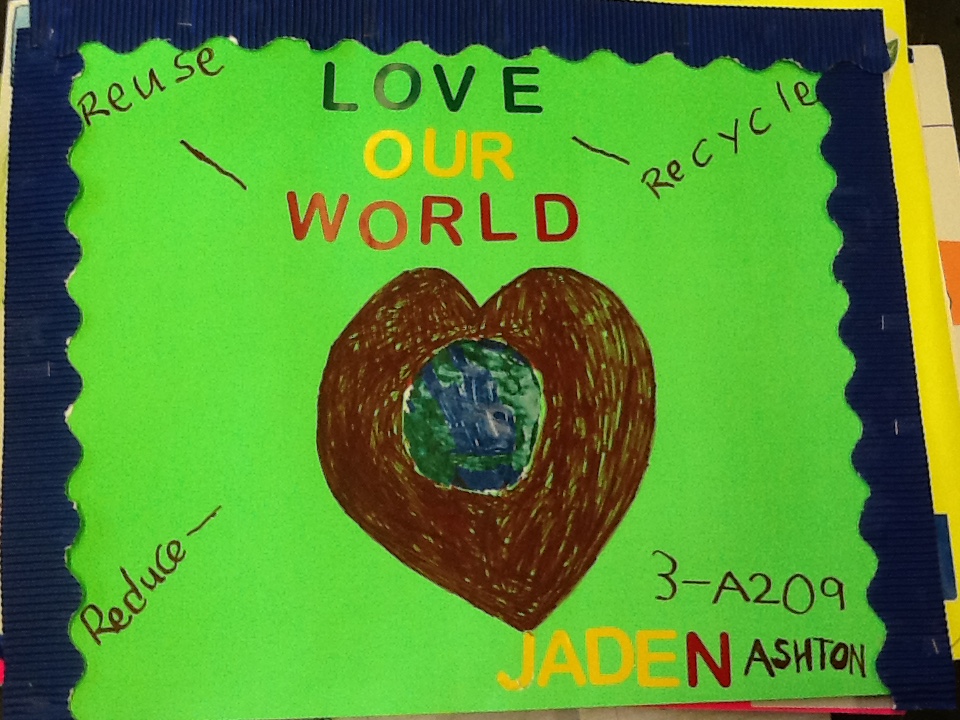 Reuse
LOVE
OUR
WORLD
ReCYCle
Reduce
3-A209
JADEN ASHTON